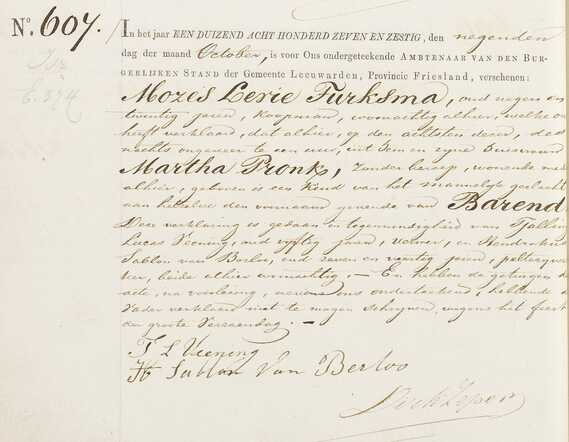 No. 607.
Isr
6.374
In het jaar EEN DUIZEND ACHT HONDERD ZEVEN EN ZESTIG, den negenden
dag der maand October, is voor Ons ondergeteekende AMBTENAAR VAN DEN BUR-
GERLIJKEN STAND der Gemeente LEEUWARDEN, Provincie FRIESLAND, verschenen:
Mozes Levie Turksma, oud negen en
twintig jaren, koopman, woonachtig alhier, welke ons
heeft verklaard, dat alhier, op den achtsten dezer, des
nachts ongeveer te een ure, uit hem en zijne huisvrouw
Martha Pronk, zonder beroep, wonende mede
alhier, geboren is een kind van het mannelijk geslacht
aan hetwelk den voornaam gevende van Barend
Deze verklaring is gedaan in tegenwoordigheid van Tjalling
Lucas Veening, oud vijftig jaren, verwer, en Hendrikus
Sablon van Berloo, oud zeven en veertig jaren,
beide alhier woonachtig. — En hebben de getuigen deze
acte, na voorlezing, nevens ons onderteekend, hebbende de
Vader verklaard niet te mogen schrijven, wegens het feest
der groote Verzoendag. —
T L Veening
H Sablon Van Berloo